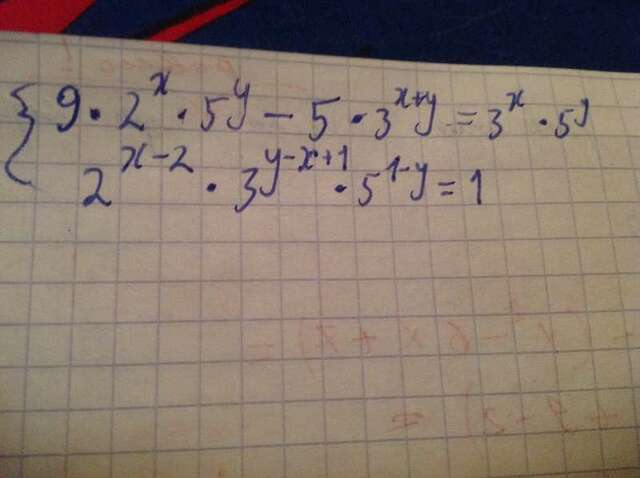 { 9 · 2^x · 5^y − 5 · 3^{x+y} = 3^x · 5^y
2^{x−2} · 3^{y−x+1} · 5^{1−y} = 1